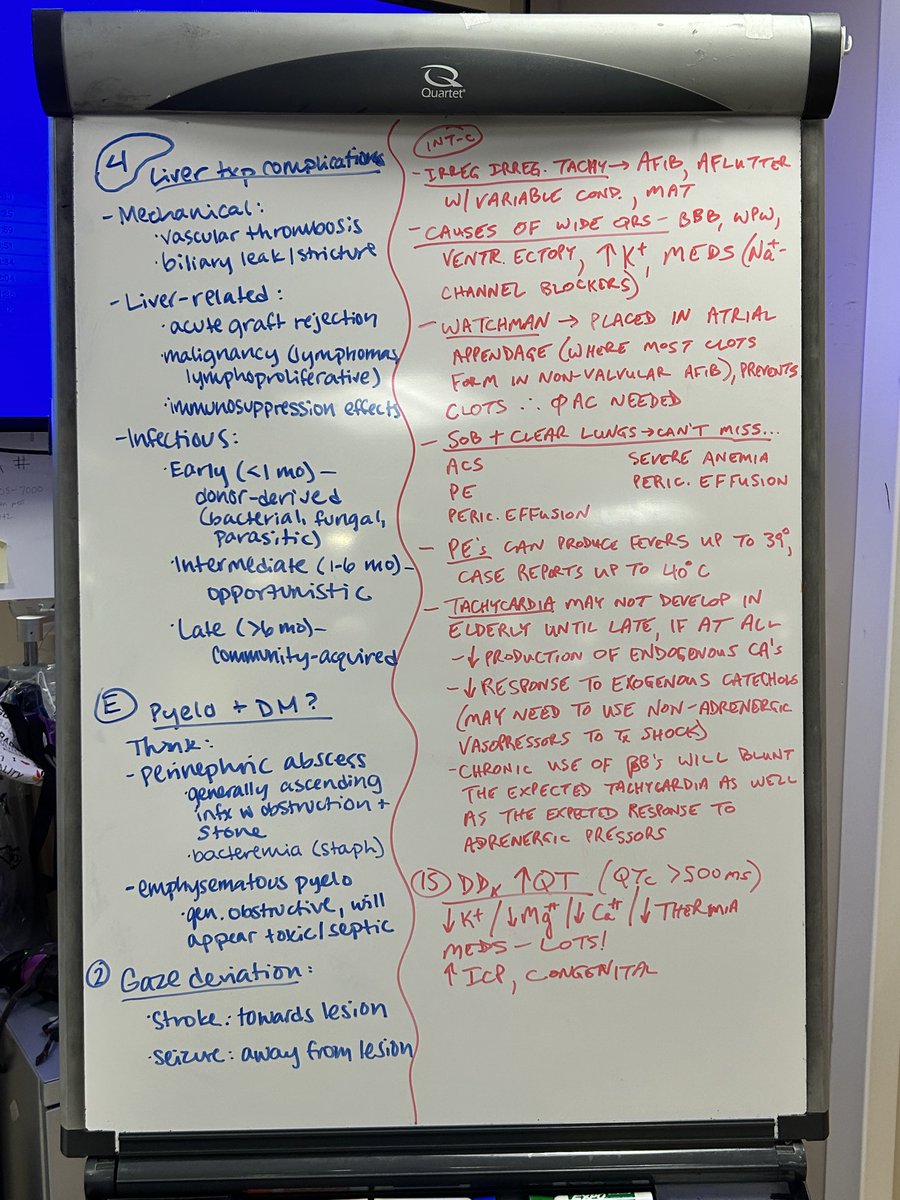 Quartet
4 Liver txp complications
- Mechanical:
· vascular thrombosis
· biliary leak/stricture
- Liver-related:
· acute graft rejection
· malignancy (lymphomas,
lymphoproliferative)
· immunosuppression effects
- Infectious:
· Early (<1 mo) –
donor-derived
(bacterial, fungal,
parasitic)
· Intermediate (1-6 mo) –
opportunistic
· Late (>6 mo) –
community-acquired
E Pyelo + DM?
Think:
- perinephric abscess
· generally ascending
infx w obstruction +
stone
· bacteremia (staph)
- emphysematous pyelo
· gen. obstructive, will
appear toxic/septic
2 Gaze deviation:
· Stroke: towards lesion
· seizure: away from lesion
INT-C
- IRREG IRREG. TACHY → AFIB, AFLUTTER
W/ VARIABLE COND., MAT
- CAUSES OF WIDE QRS – BBB, WPW,
VENTR. ECTOPY, ↑K+, MEDS (Na+-
CHANNEL BLOCKERS)
- WATCHMAN → PLACED IN ATRIAL
APPENDAGE (WHERE MOST CLOTS
FORM IN NON-VALVULAR AFIB), PREVENTS
CLOTS ∴ Φ AC NEEDED
- SOB + CLEAR LUNGS → CAN'T MISS...
ACS SEVERE ANEMIA
PE PERIC. EFFUSION
PERIC. EFFUSION
- PE's CAN PRODUCE FEVERS UP TO 39°,
CASE REPORTS UP TO 40°C
- TACHYCARDIA MAY NOT DEVELOP IN
ELDERLY UNTIL LATE, IF AT ALL
- ↓ PRODUCTION OF ENDOGENOUS CA's
- ↓ RESPONSE TO EXOGENOUS CATECHOLS
(MAY NEED TO USE NON-ADRENERGIC
VASOPRESSORS TO Tx SHOCK)
- CHRONIC USE OF βB's WILL BLUNT
THE EXPECTED TACHYCARDIA AS WELL
AS THE EXPECTED RESPONSE TO
ADRENERGIC PRESSORS
15 DDx ↑QT (QTc >500ms)
↓K+ / ↓Mg++ / ↓Ca++ / ↓THERMIA
MEDS – LOTS!
↑ICP, CONGENITAL